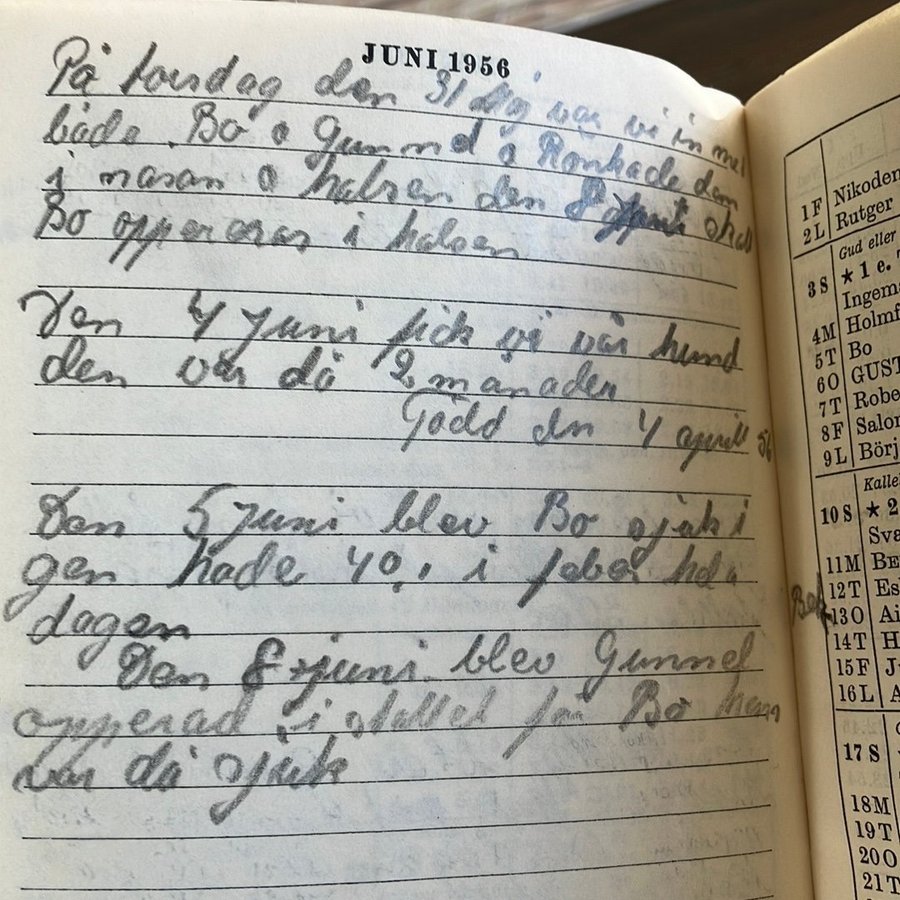 JUNI 1956
På torsdag den 31 Maj var vi in med
båda Bo o Gunnel o Rönkade dem
i näsan o halsen den 8 skall
Bo oppereras i halsen
Den 4 Juni fick vi vår hund
den var då 2 månader
Född den 4 april 56
Den 5 Juni blev Bo sjuk i
gen hade 40,1 i feber hela
dagen
Den 8 juni blev Gunnel
opperad i stället för Bo han
var då sjuk
1 F Nikodem
2 L Rutger
Gud eller
3 S ★ 1 e.
Ingem
4 M Holmf
5 T Bo
6 O GUST
7 T Robe
8 F Salom
9 L Börj
Kalle
10 S ★ 2
Sva
11 M BE
12 T Esk
13 O Ai
14 T H
15 F J
16 L A
17 S
18 M
19 T
20 O
21 T